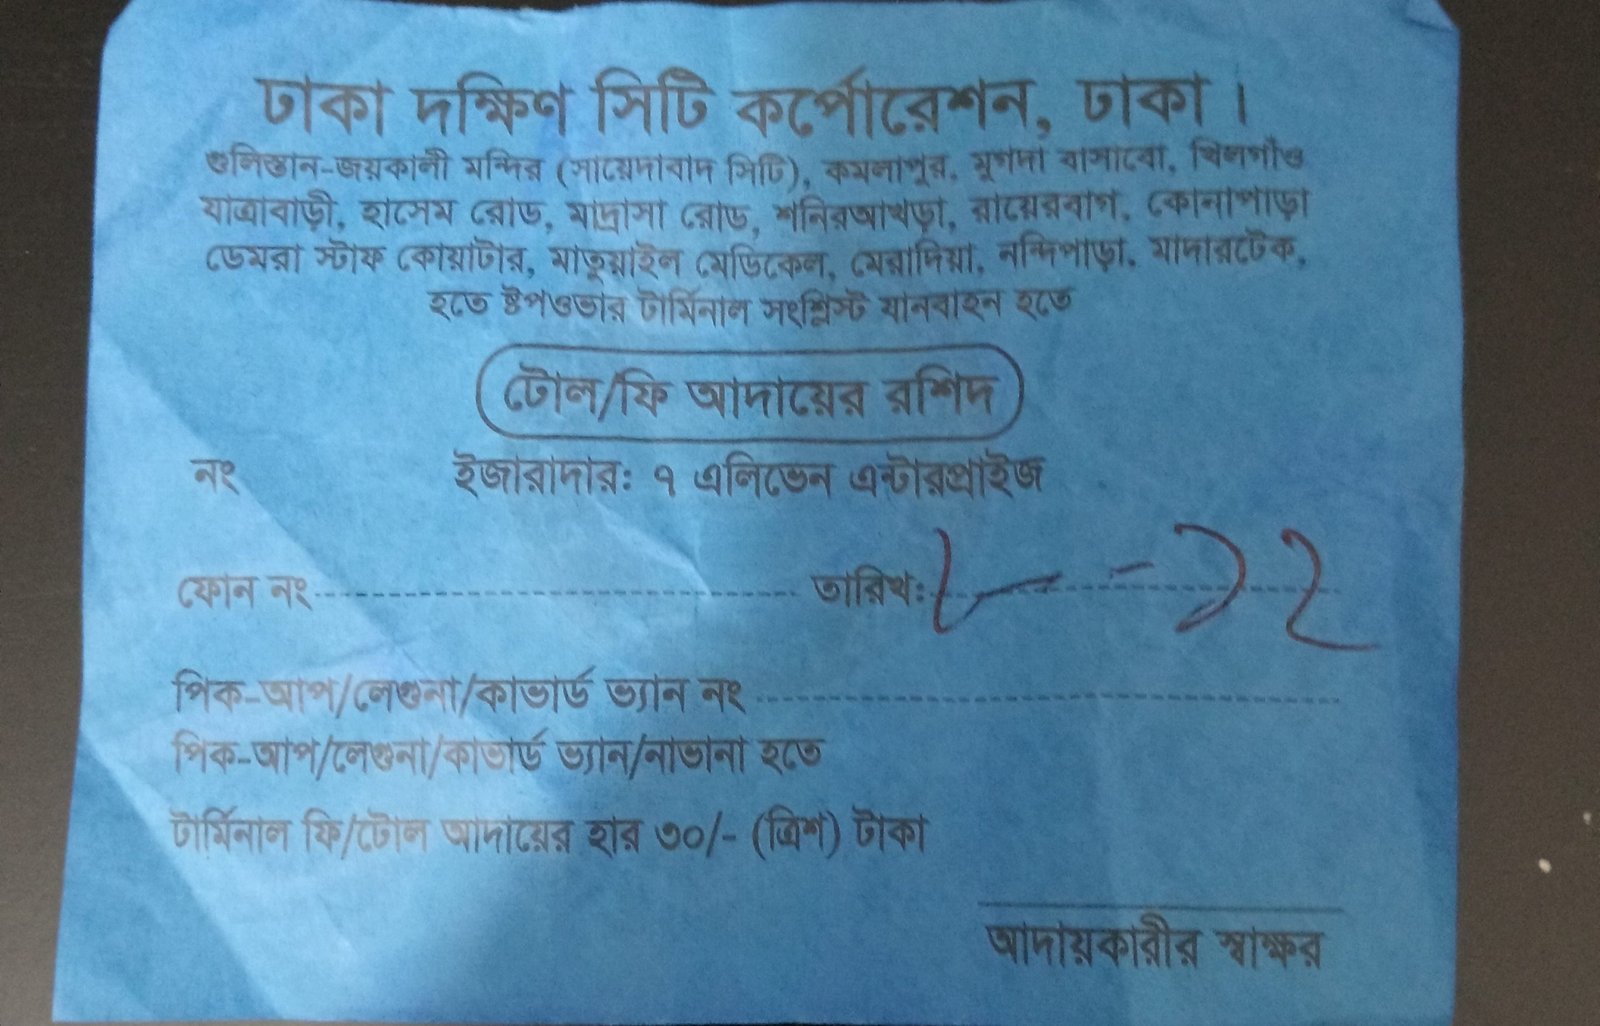 ঢাকা দক্ষিণ সিটি কর্পোরেশন, ঢাকা।
গুলিস্তান-জয়কালী মন্দির (সায়েদাবাদ সিটি), কমলাপুর, মুগদা বাসাবো, খিলগাঁও
যাত্রাবাড়ী, হাসেম রোড, মাদ্রাসা রোড, শনিরআখড়া, রায়েরবাগ, কোনাপাড়া
ডেমরা স্টাফ কোয়াটার, মাতুয়াইল মেডিকেল, মেরাদিয়া, নন্দিপাড়া, মাদারটেক,
হতে ষ্টপওভার টার্মিনাল সংশ্লিস্ট যানবাহন হতে
টোল/ফি আদায়ের রশিদ
নং ইজারাদার: ৭ এলিভেন এন্টারপ্রাইজ
ফোন নং তারিখ:
পিক-আপ/লেগুনা/কাভার্ড ভ্যান নং
পিক-আপ/লেগুনা/কাভার্ড ভ্যান/নাভানা হতে
টার্মিনাল ফি/টোল আদায়ের হার ৩০/- (ত্রিশ) টাকা
আদায়কারীর স্বাক্ষর